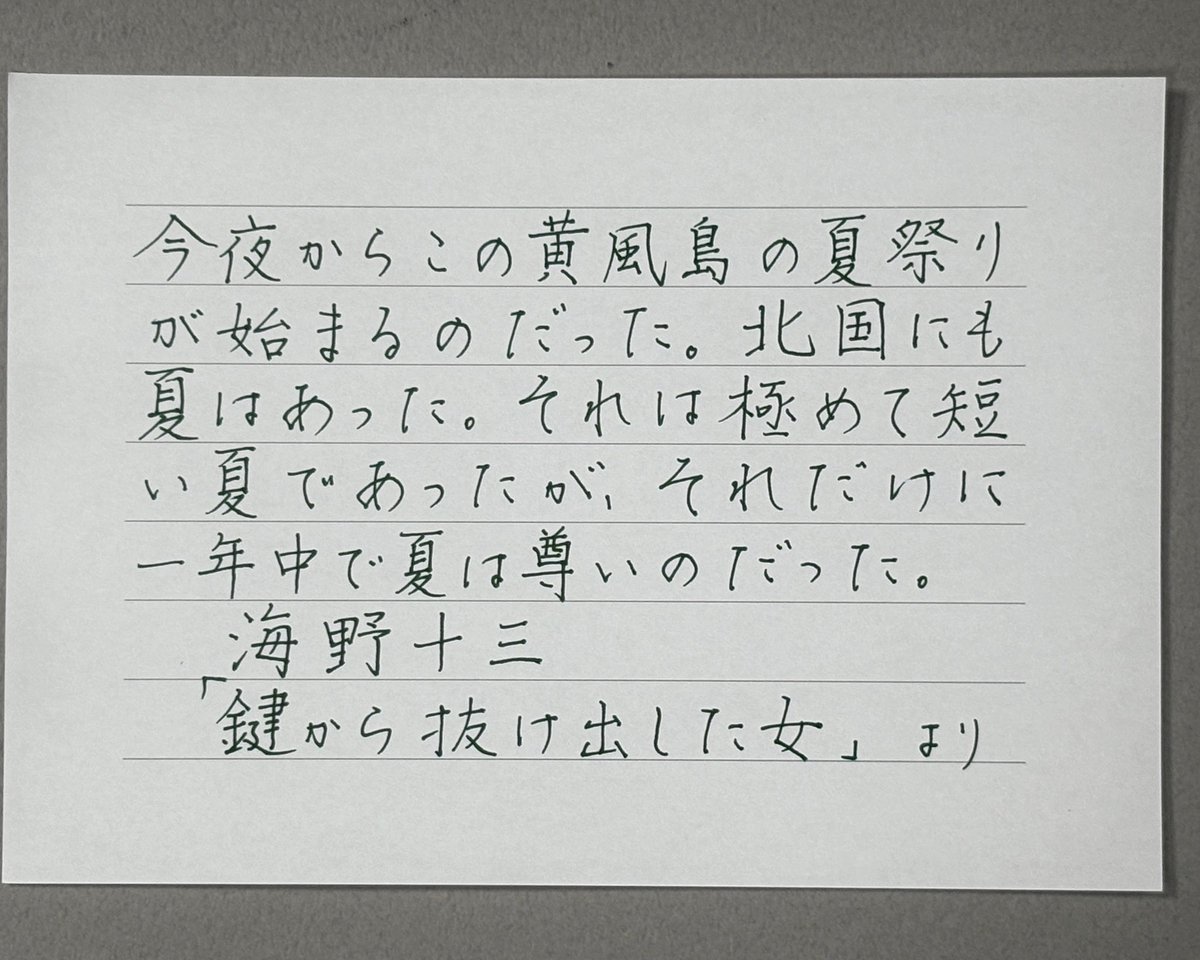 今夜からこの黄風島の夏祭り
が始まるのだった。北国にも
夏はあった。それは極めて短
い夏であったが、それだけに
一年中で夏は尊いのだった。
海野十三
「鍵から抜け出した女」より